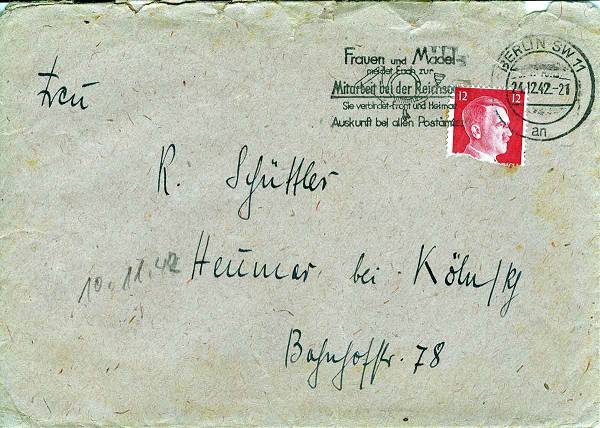 Frauen und Mädel
meldet Euch zur
Mitarbeit bei der
Sie verbindet Front und Heimat
Auskunft bei allen
BERLIN SW 11
24.12.42.-21
an
12 12
Frau
R. Schüttler
10.11.42
Heumar bei Köln/
Bahnhofstr. 78